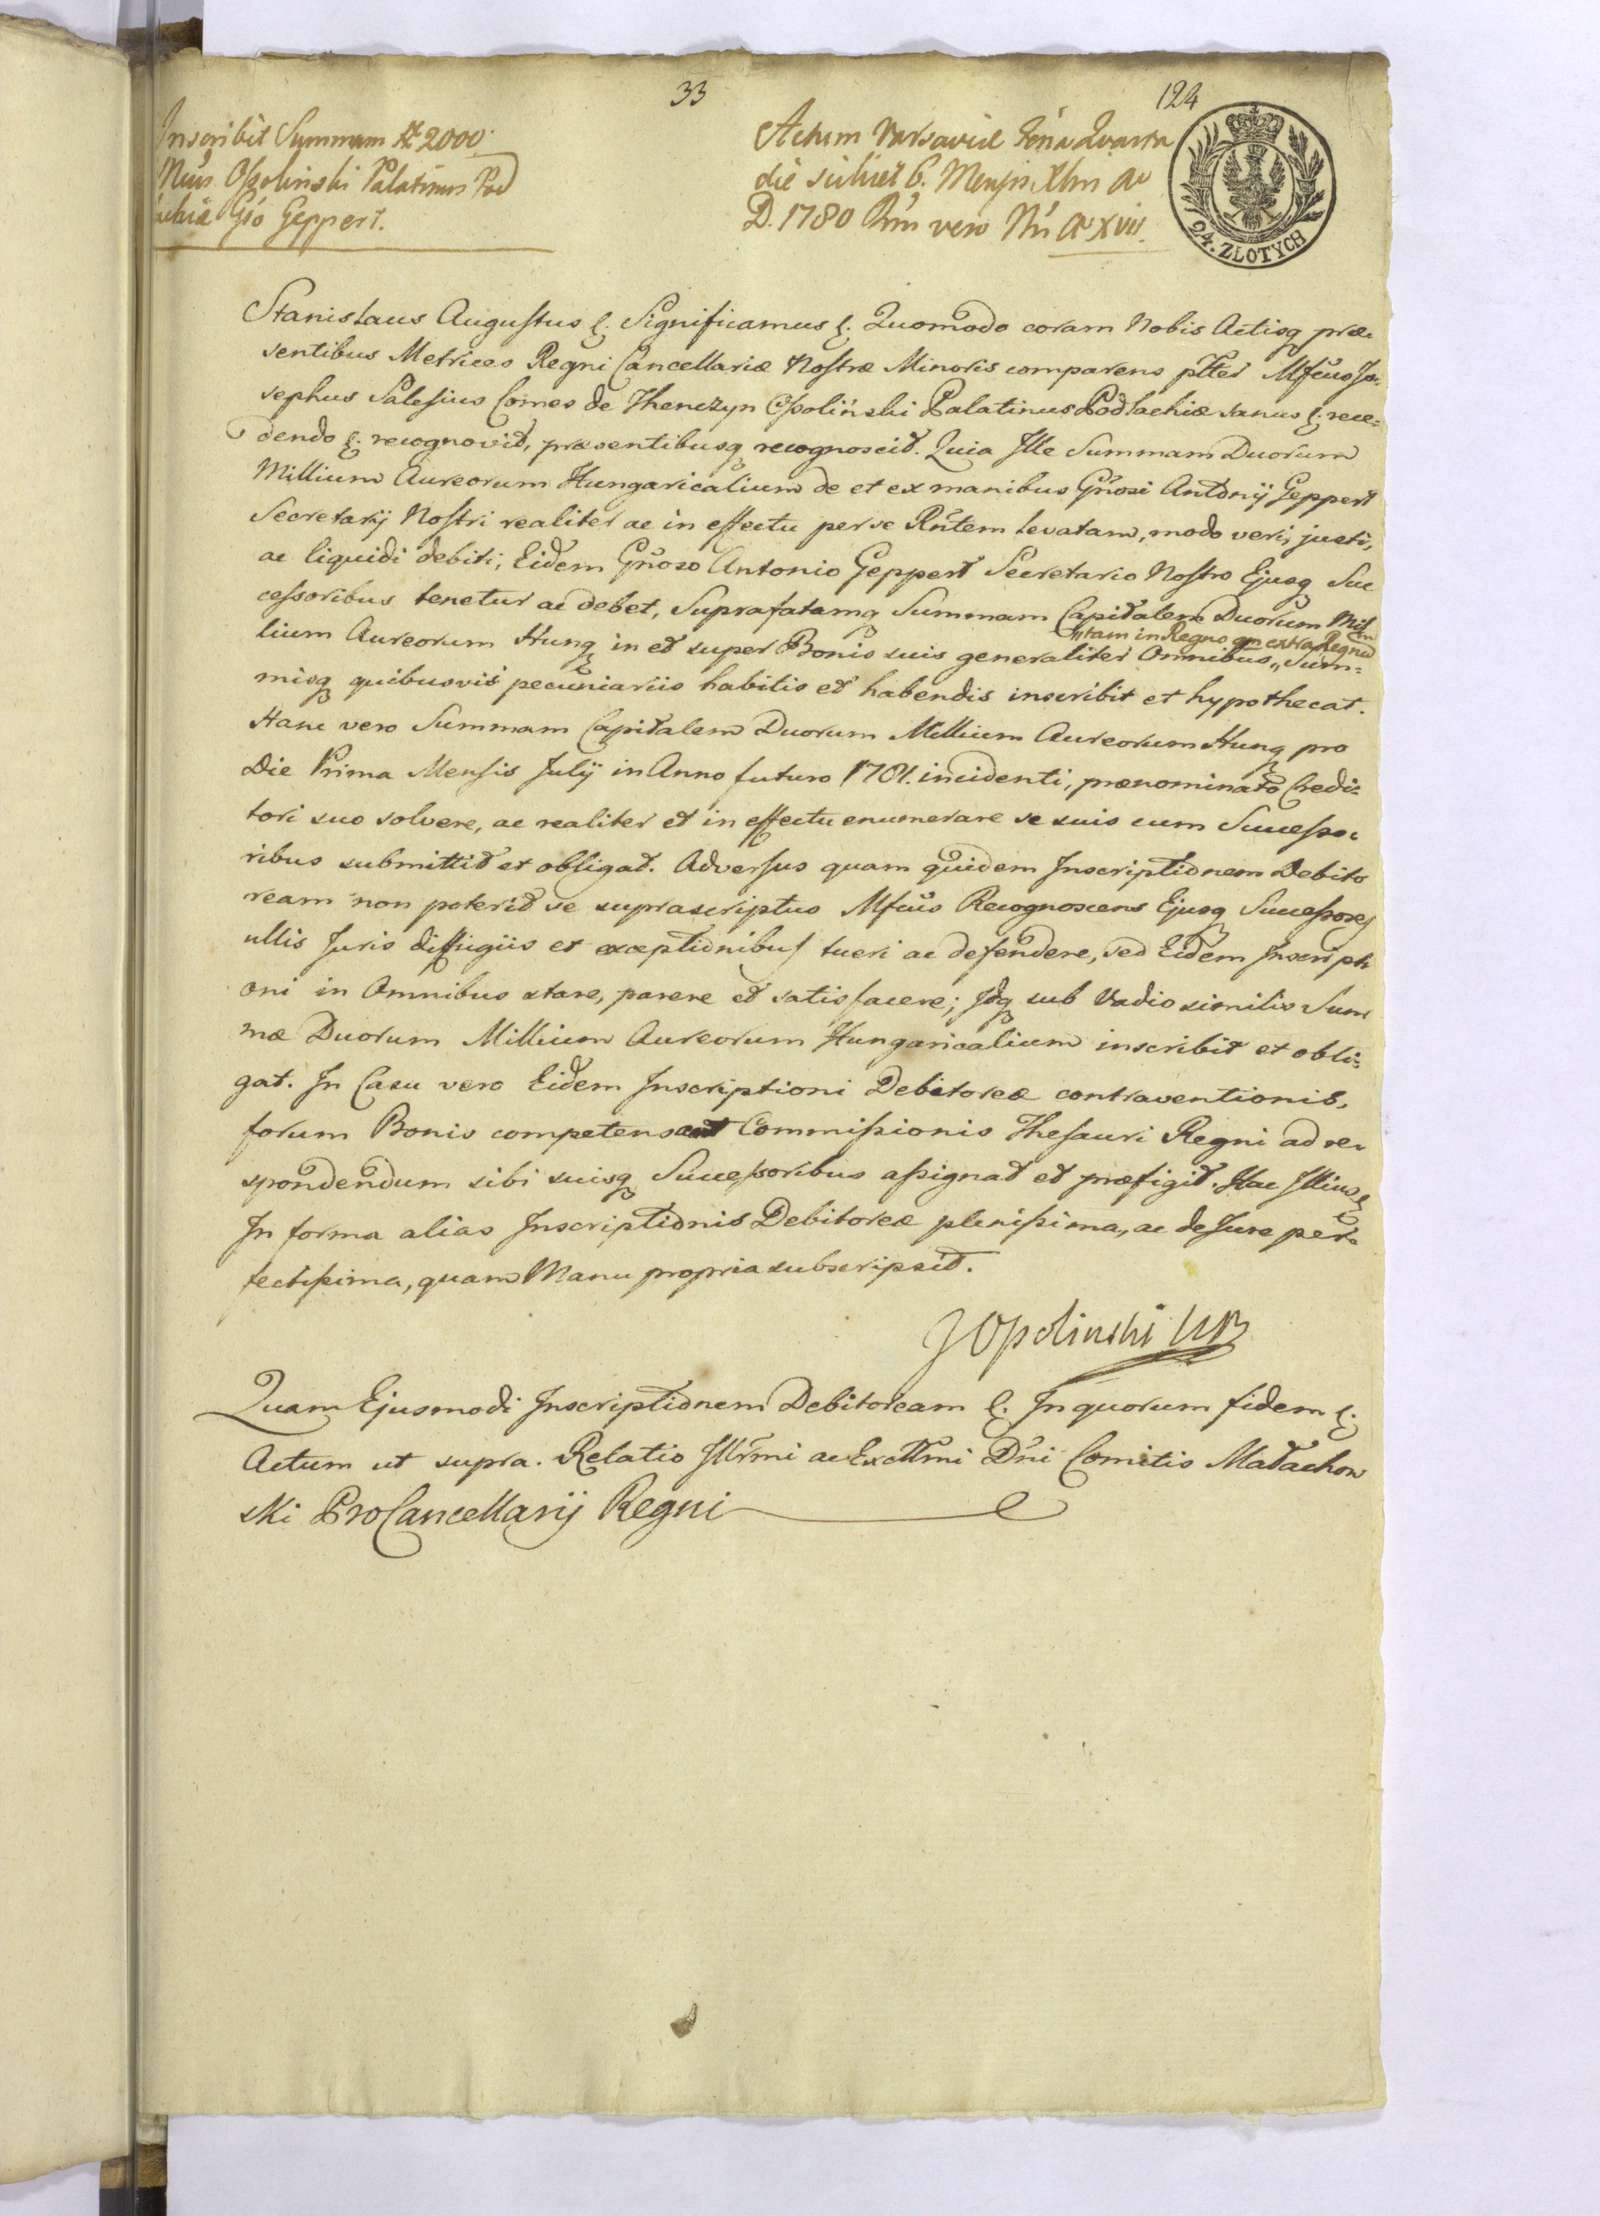 33
124
Inscribit Summam # 2000
Mcus Ossolinski Palatinus Pod
lachiæ Gso Geppert.
Actum Varsaviæ Feria Quarta
die scilicet 6. Mensis Xbris Ao
D. 1780 Rni vero Nri Ao XVII.
24. ZŁOTYCH
Stanislaus Augustus &. Significamus &. Quomodo coram Nobis Actisq præ-
sentibus Metrices Regni Cancellariæ Nostræ Minoris comparens psttr Mfcus Jo-
sephus Salesius Comes de Thenczyn Ossoliński Palatinus Podlachiæ sanus &. rece-
dendo &. recognovit, præsentibusq recognoscit. Quia Ille Summam Duorum
Millium Aureorum Hungaricalium de et ex manibus Gñosi Antonij Geppert
Secretarij Nostri realiter ac in effectu per se Rñtem levatam, modo veri, justi,
ac liquidi debiti, Eidem Gñoso Antonio Geppert Secretario Nostro Ejusq Suc
cessoribus tenetur ac debet, Suprafatamq Summam Capitalem Duorum Mil
lium Aureorum Hung in et super Bonis suis generaliter Omnibus „ Sum-
„tam in Regno qm extra Regnum
misq quibusvis pecuniariis habitis et habendis inscribit et hypothecat.
Hanc vero Summam Capitalem Duorum Millium Aureorum Hung pro
Die Prima Mensis Julij in Anno futuro 1781. incidenti, prænominato Credi-
tori suo solvere, ac realiter et in effectu enumerare se suis cum Successo-
ribus submittit et obligat. Adversus quam quidem Inscriptionem Debito
ream non poterit se suprascriptus Mfcus Recognoscens Ejusq Successores
ullis Juris diffugiis et exceptionibus tueri ac defendere, sed Eidem Inscripti
oni in Omnibus stare, parere et satisfacere; Idq sub Vadio similis Sum
mæ Duorum Millium Aureorum Hungaricalium inscribit et obli-
gat. In Casu vero Eidem Inscriptioni Debitoreæ contraventionis,
forum Bonis competens aut Commissionis Thesauri Regni ad re-
spondendum sibi suisq Successoribus assignat et præfigit. Hac Illius &
In forma alias Inscriptionis Debitoreæ plenissima, ac de Jure per-
fectissima, quam Manu propria subscripsit.
J Ossolinski WP
Quam Ejusmodi Inscriptionem Debitoream &. In quorum fidem &.
Actum ut supra. Relatio Illrmi ac Excllmi Dñi Comitis Małachow
ski ProCancellarij Regni